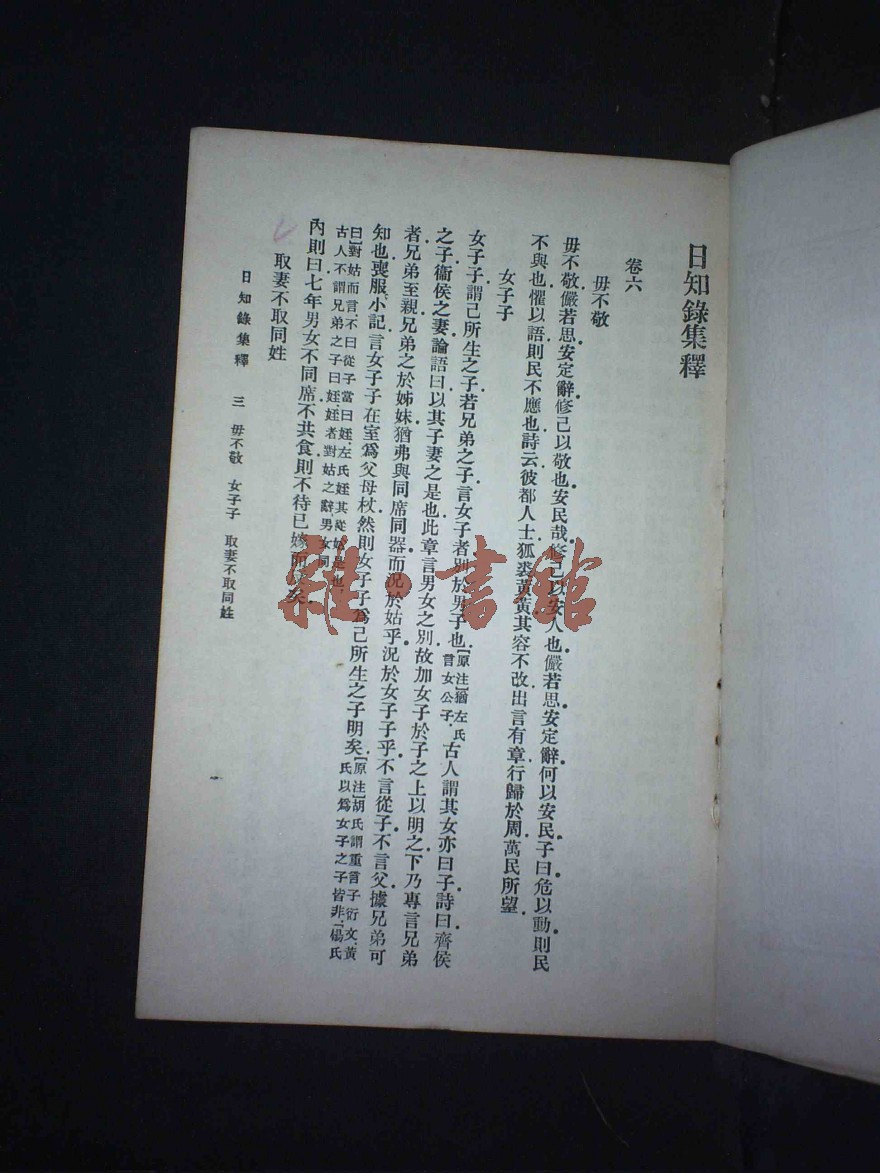 日知錄集釋
卷六
毋不敬
毋不敬儼若思安定辭修己以敬也安民哉修己以安人也儼若思安定辭何以安民子曰危以動則民
不與也懼以語則民不應也詩云彼都人士狐裘黃黃其容不改出言有章行歸於周萬民所望
女子子
女子子謂己所生之子若兄弟之子言女子者別於男子也【原注】猶左氏言女公子古人謂其女亦曰子詩曰齊侯
之子衞侯之妻論語曰以其子妻之是也此章言男女之別故加女子於子之上以明之下乃專言兄弟
者兄弟至親兄弟之於姊妹猶弗與同席同器而況於姑乎況於女子子乎不言從子不言父據兄弟可
知也喪服小記言女子子在室爲父母杖然則女子子爲己所生之子明矣【原注】胡氏謂重言子衍文黃氏以爲女子之子皆非【楊氏
曰】對姑而言不曰從子當曰姪左氏姪其從姑是也古人不謂兄弟之子曰姪姪者對姑之辭男女同
內則曰七年男女不同席不共食則不待已嫁而矣
取妻不取同姓
日知錄集釋 三 毋不敬 女子子 取妻不取同姓
雜·書館